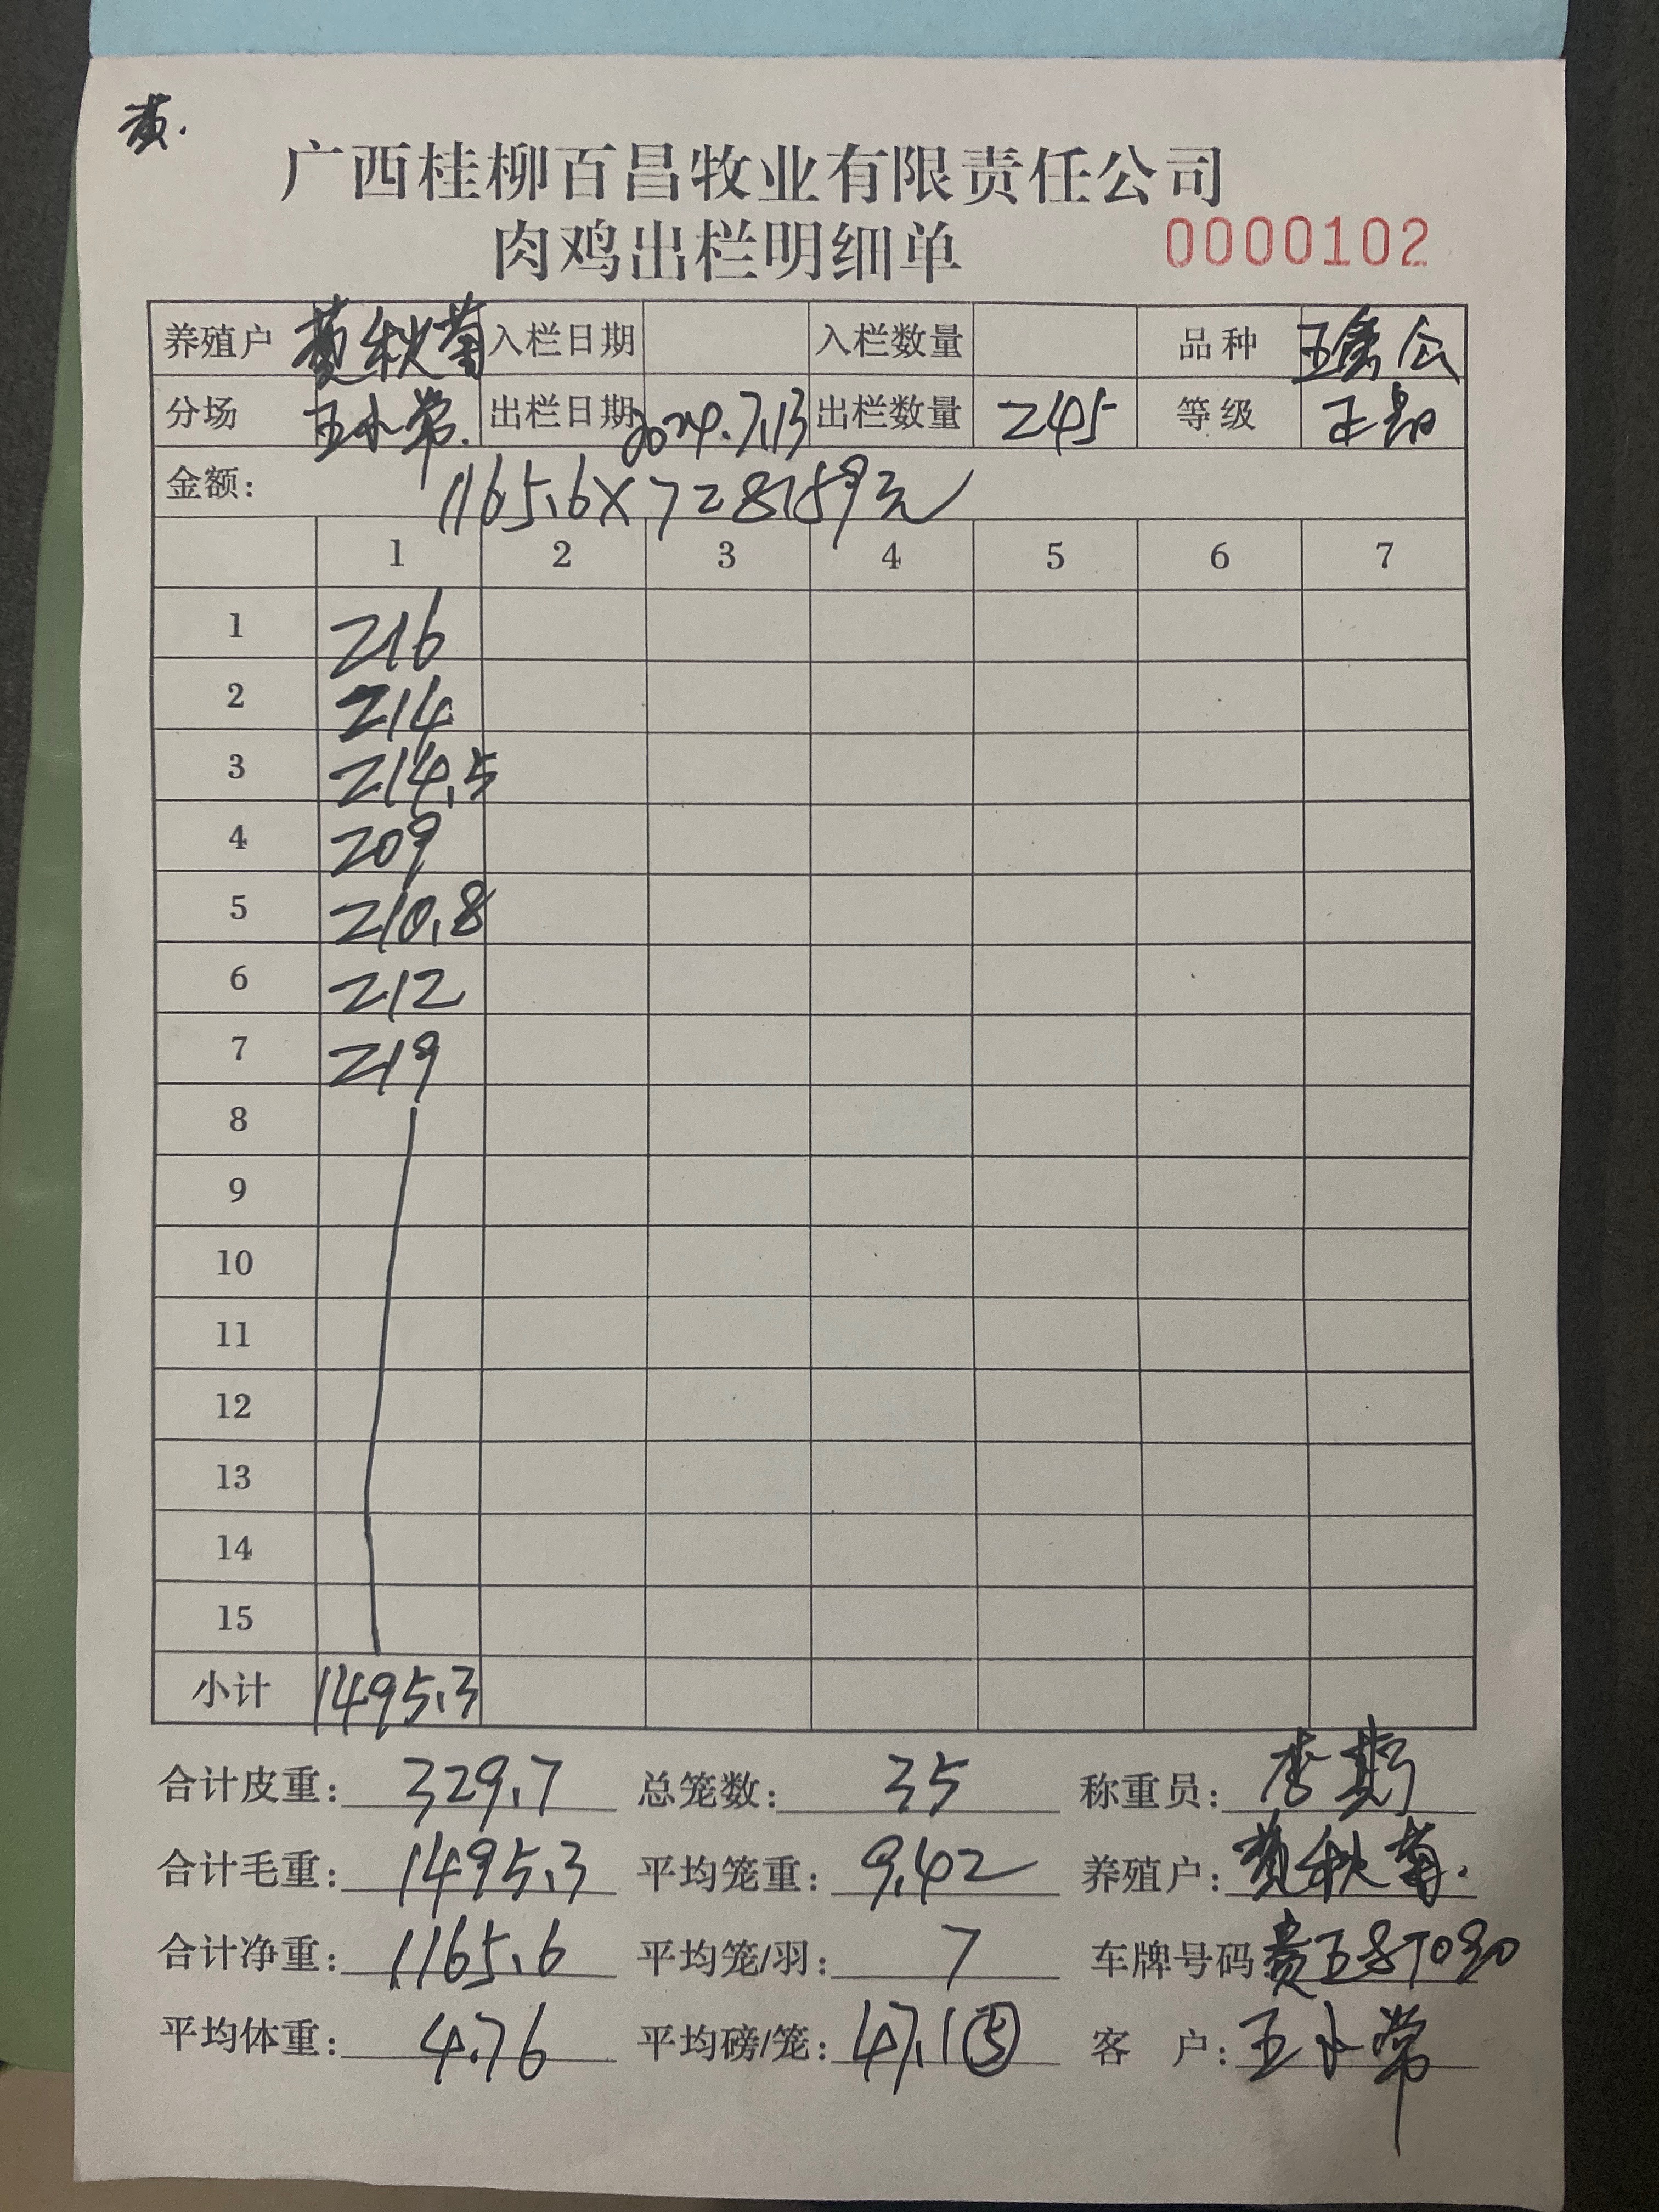 黄.
广西桂柳百昌牧业有限责任公司
肉鸡出栏明细单 0000102
养殖户 黄秋菊 入栏日期 入栏数量 品种
分场 王小常. 出栏日期 2024.7.13 出栏数量 245 等级 正品
金额: 1165.6×7=8159元
1 2 3 4 5 6 7
1 216
2 214
3 214.5
4 209
5 210.8
6 212
7 219
8
9
10
11
12
13
14
15
小计 1495.3
合计皮重: 329.7 总笼数: 35 称重员: 李
合计毛重: 1495.3 平均笼重: 9.42 养殖户: 黄秋菊.
合计净重: 1165.6 平均笼/羽: 7 车牌号码:
平均体重: 4.76 平均磅/笼: 47.1⑤ 客户: 王小常